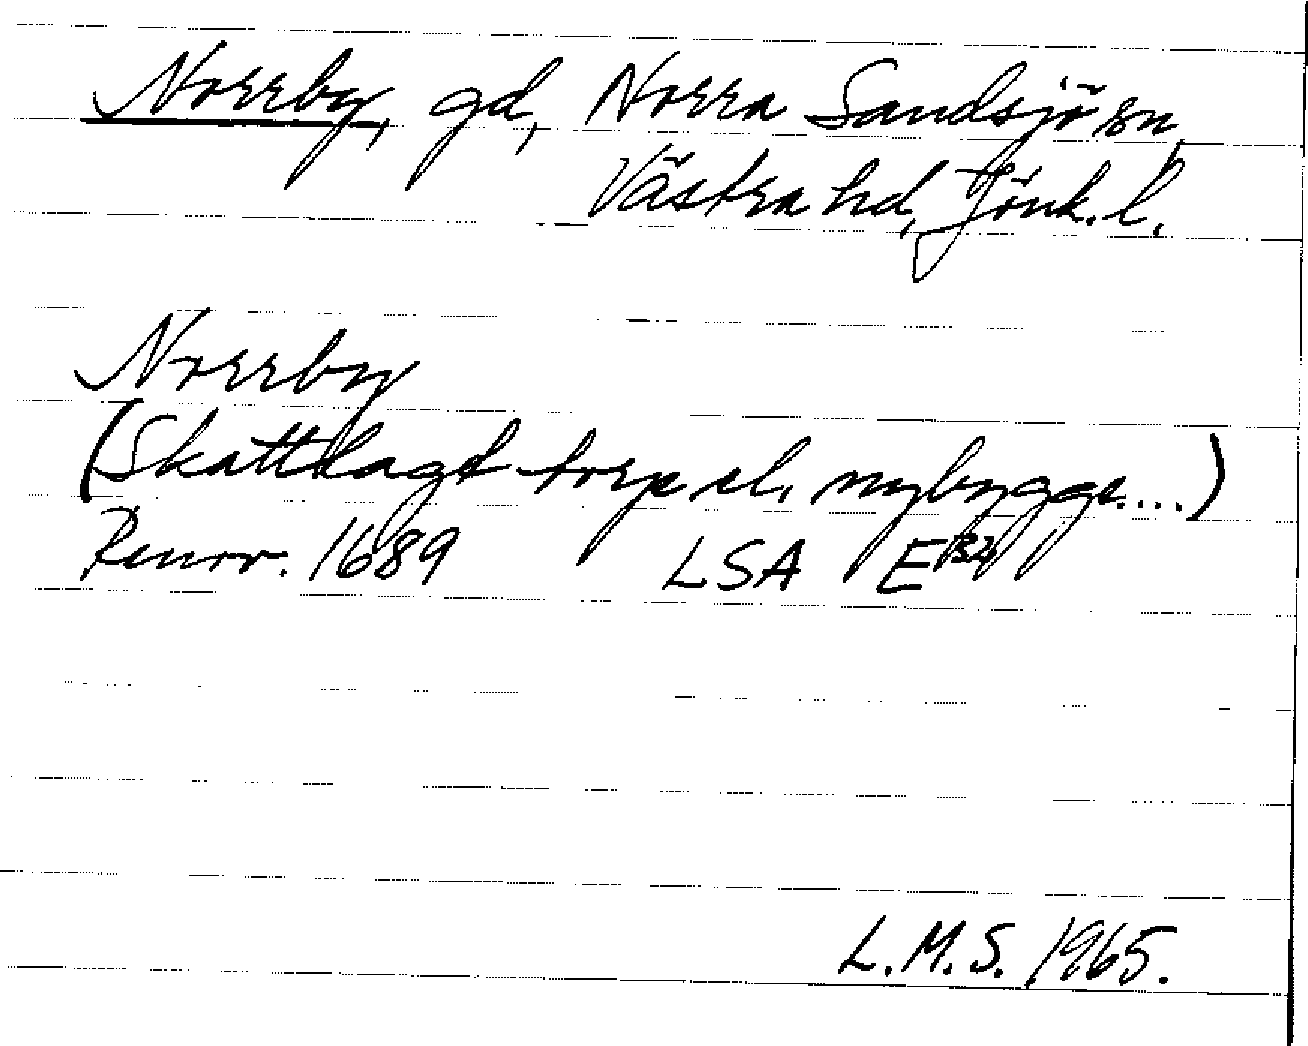 Norrby, gd, Norra Sandsjö sn,
Västra hd, Jönk. l.
Norrby
(Skattlagd torp el. nybygge....)
Renov. 1689 LSA E
L.M.S. 1965.